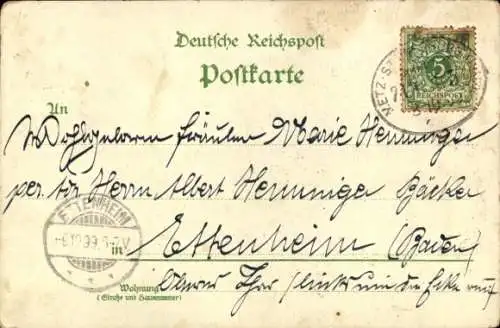 Deutsche Reichspost
Postkarte
5
REICHSPOST
METZ-ST
An
Wohlgeboren Fräulein Marie Henninger
per adr Herrn Albert Henninger Bäcker
ETTENHEIM
-6.10.99.6-7V.
in Ettenheim (Baden)
Wohnung Oberes Thor (links um die Ecke
(Straße und Hausnummer)